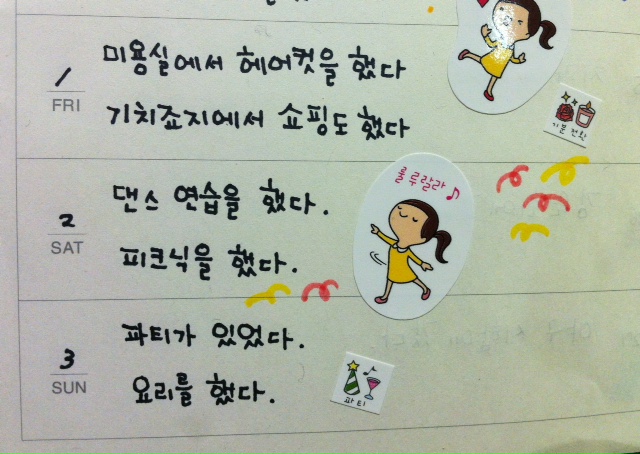 1
FRI
미용실에서 헤어컷을 했다
기치죠지에서 쇼핑도 했다
기분 전환
2
SAT
댄스 연습을 했다.
피크닉을 했다.
룰루랄라♪
3
SUN
파티가 있었다.
요리를 했다.
파티